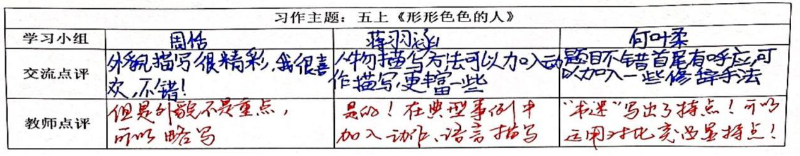 习作主题：五上《形形色色的人》
学习小组 周恬 蒋羽涵 何叶柔
交流点评 外貌描写很精彩，我很喜 人物描写方法可以加入动 题目不错首尾有呼应，可
欢，不错！ 作描写，更丰富一些 以加入一些修辞手法
教师点评 但是外貌不是重点， 是的！在典型事例中 “书迷”写出了特点！可以
可以略写 加入动作、语言描写 运用对比突出显特点！